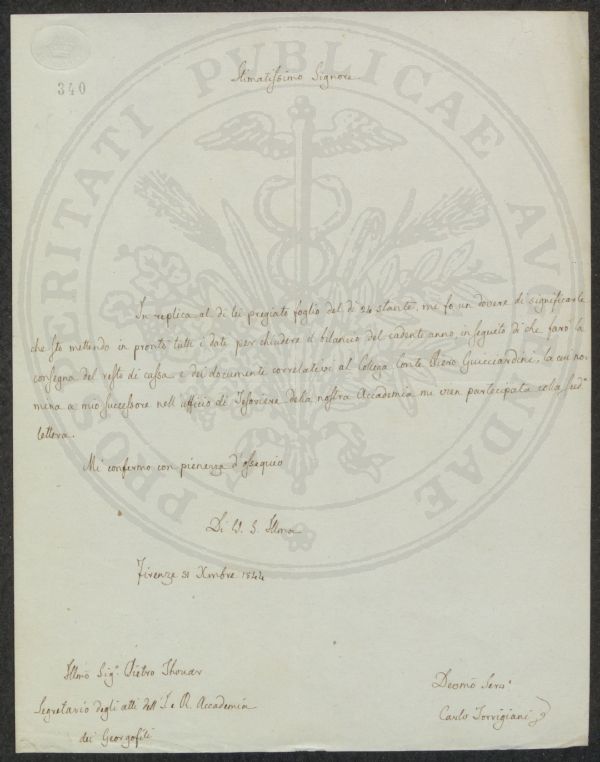 340
Stimatissimo Signore
In replica al di lei pregiato foglio del dì 24 stante, mi fo un dovere di significarle
che sto mettendo in pronto tutti i dati per chiudere il bilancio del cadente anno, in seguito di che farò la
consegna del resto di cassa e dei documenti correlativi al Collega Conte Piero Guicciardini, la cui no-
mina a mio successore nell'uffizio di Tesoriere della nostra Accademia mi vien partecipata colla sudª
lettera.
Mi confermo con pienezza d'ossequio
Di V. S. Illma
Firenze 31 Xmbre 1844
Illmo Sigr Pietro Thouar
Segretario degli atti dell'I. e R. Accademia
dei Georgofili
Devmo Serv
Carlo Torrigiani
PROSPERITATI PUBLICAE AUGENDAE